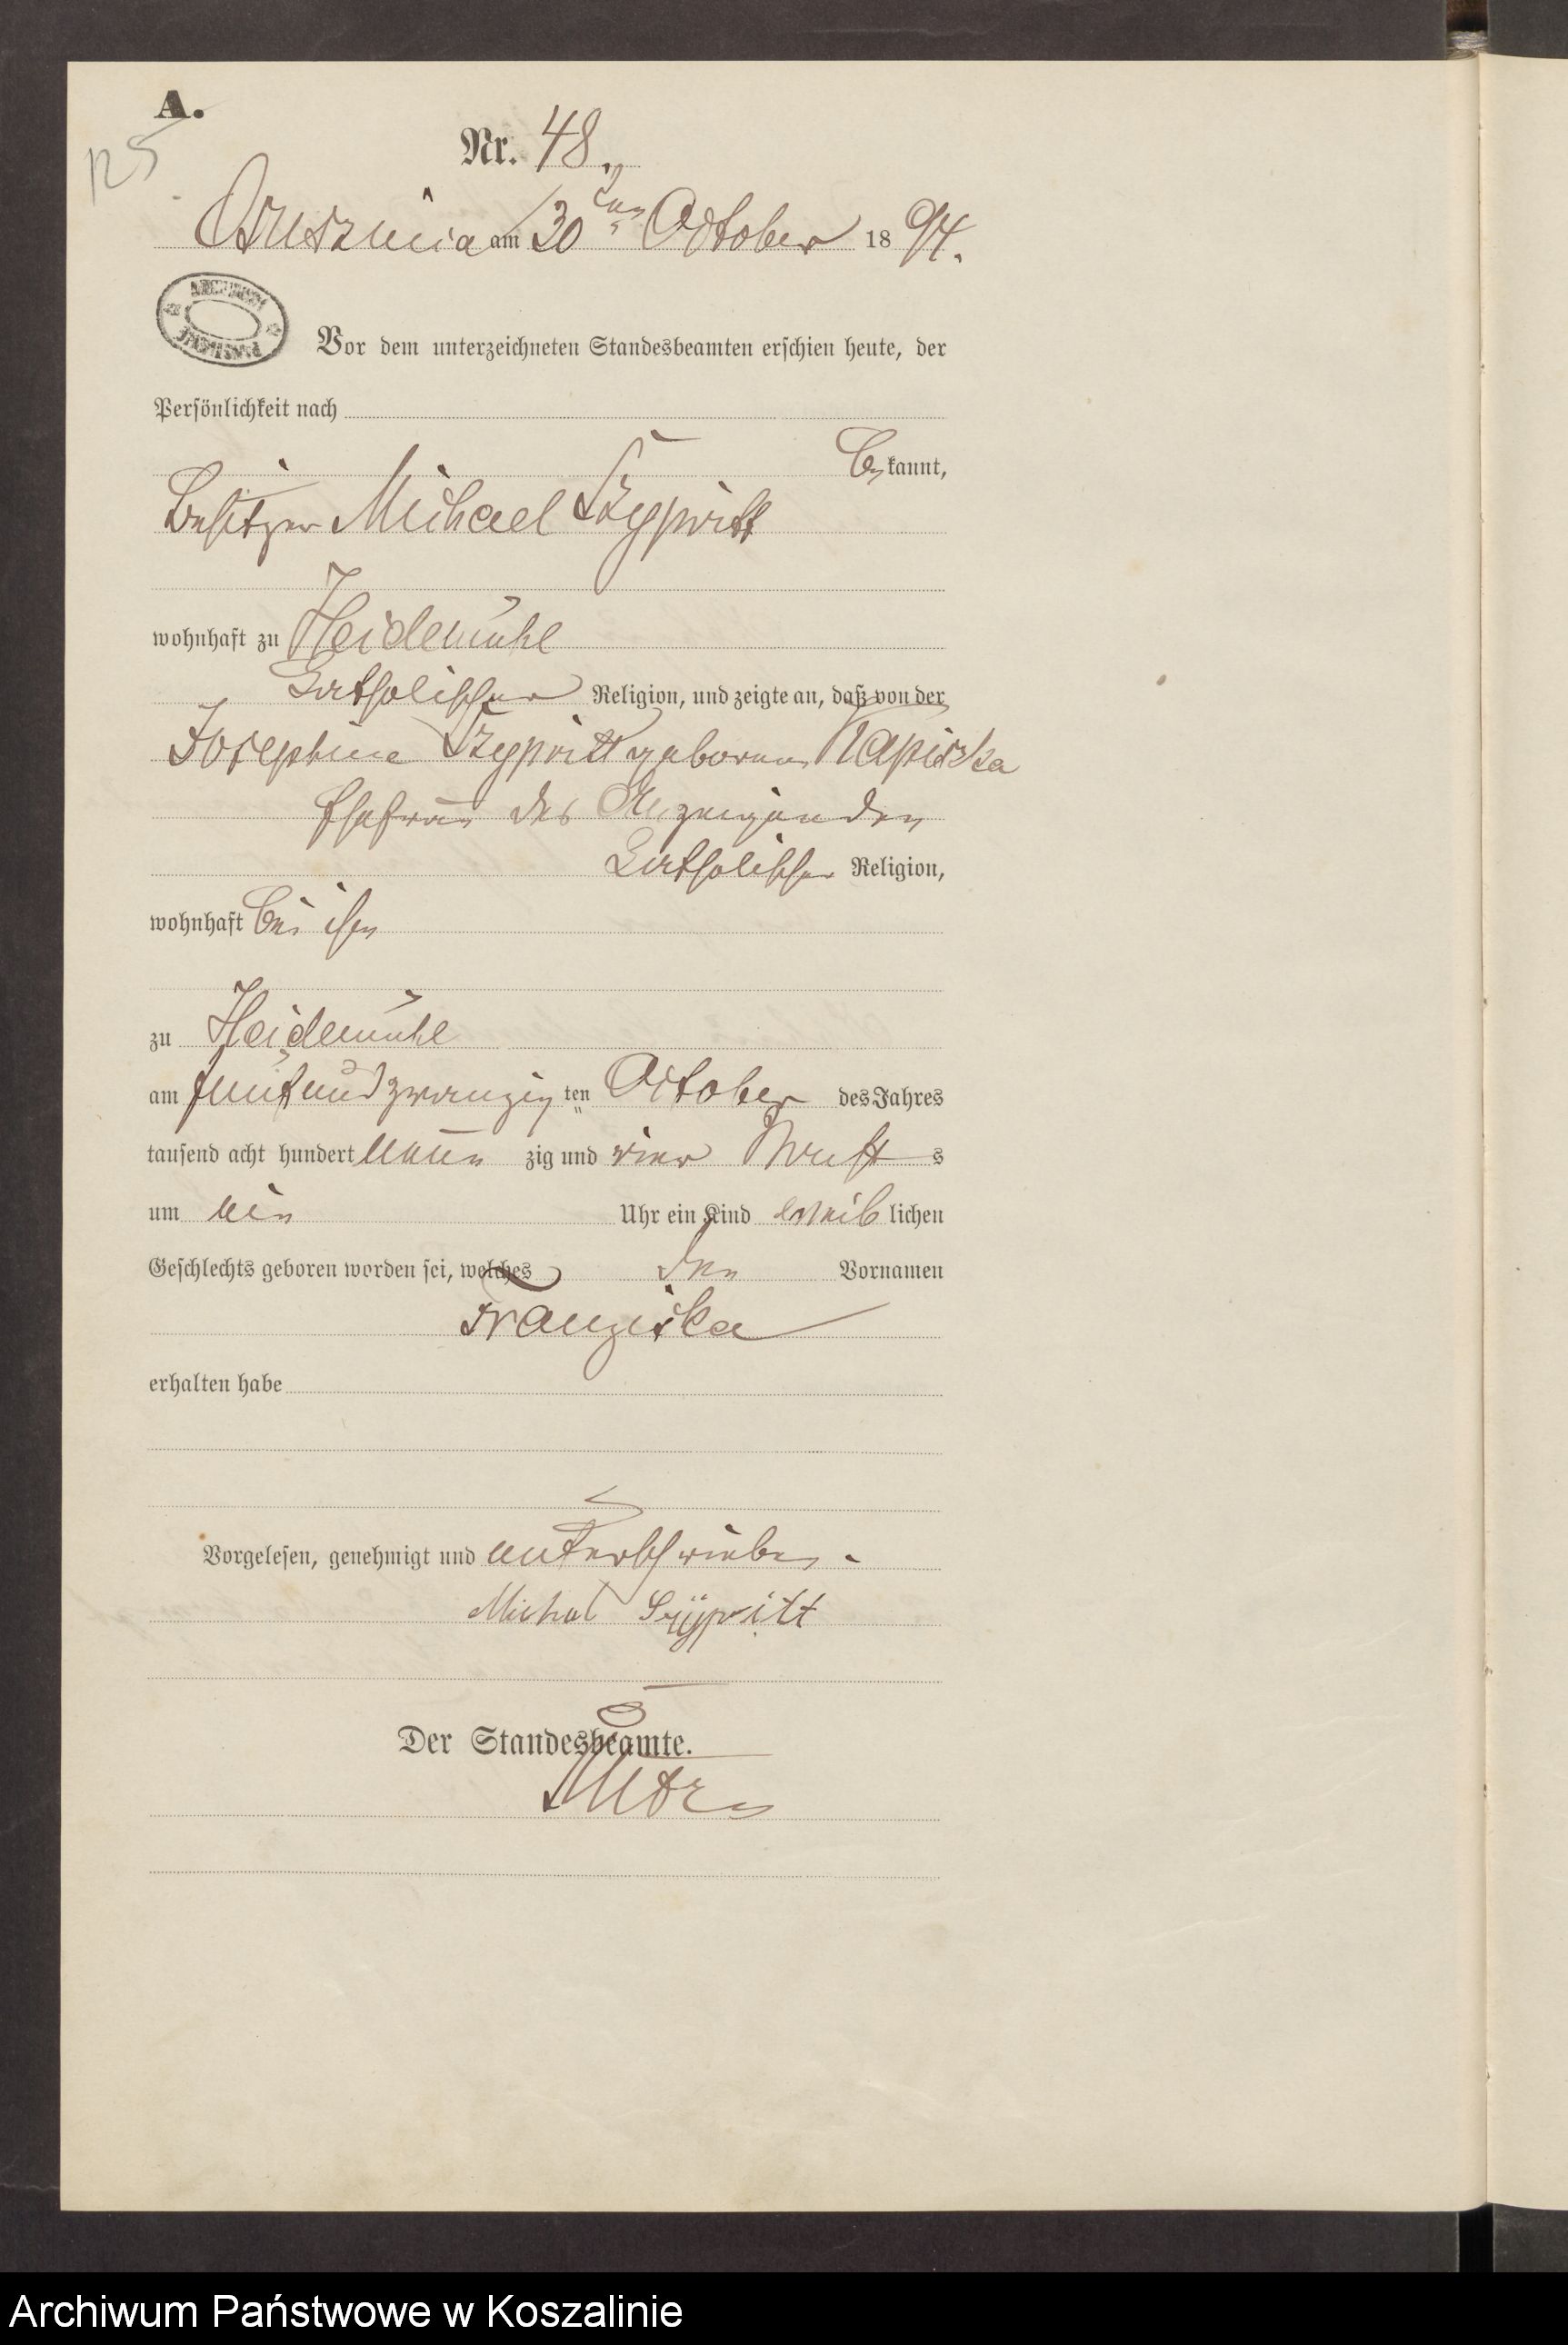 A.
125
Nr. 48.
am 30 ten October 1894.
ARCHIWUM PAŃSTWOWE
Vor dem unterzeichneten Standesbeamten erschien heute, der
Persönlichkeit nach
bekannt,
Besitzer Michael Szypritt
wohnhaft zu Heidemühl
katholischer Religion, und zeigte an, daß von der
Josephine Szypritt geborenen
Ehefrau des Anzeigenden
katholischer Religion,
wohnhaft bei ihm
zu Heidemühl
am fünfundzwanzig ten October des Jahres
tausend acht hundert neun zig und vier Nachts
um ein Uhr ein Kind weiblichen
Geschlechts geboren worden sei, welches den Vornamen
Franziska
erhalten habe
Vorgelesen, genehmigt und unterschrieben.
Michal Szÿpritt
Der Standesbeamte.
Archiwum Państwowe w Koszalinie